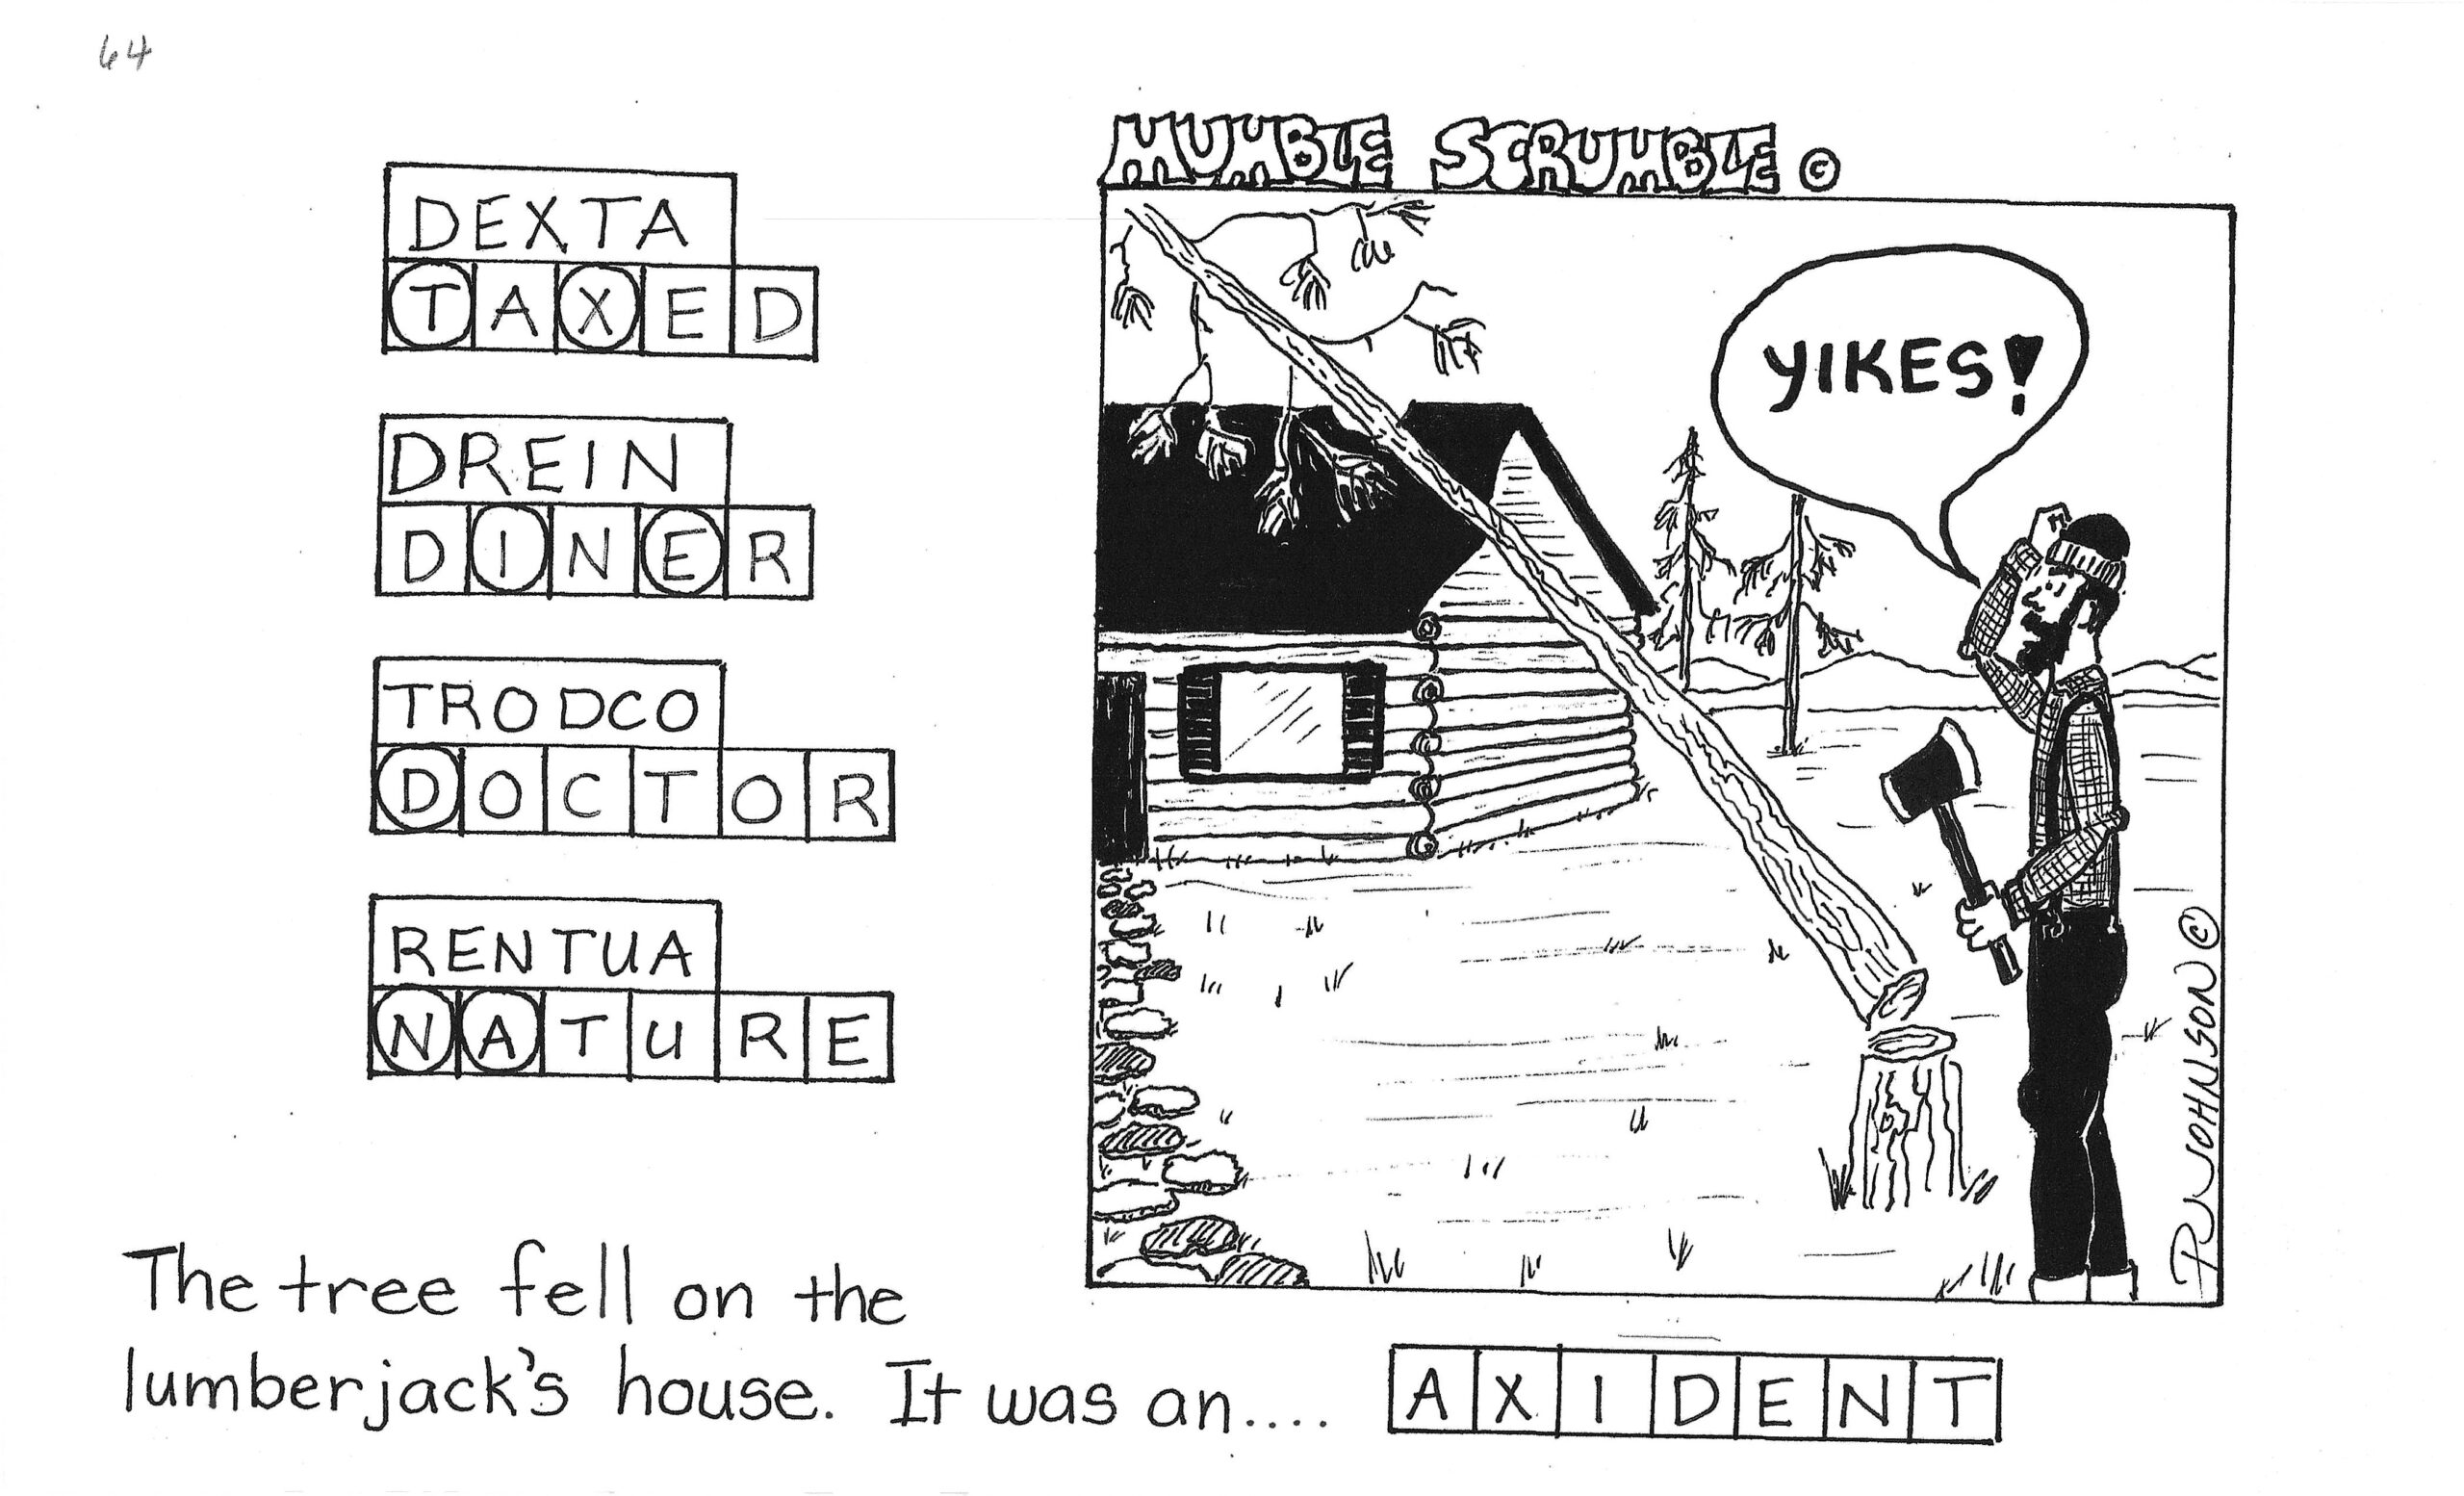 64
MUMBLE SCRUMBLE ©
DEXTA
TAXED
DREIN
DINER
TRODCO
DOCTOR
RENTUA
NATURE
YIKES!
PJJOHNSON ©
The tree fell on the
lumberjack's house. It was an.... AXIDENT